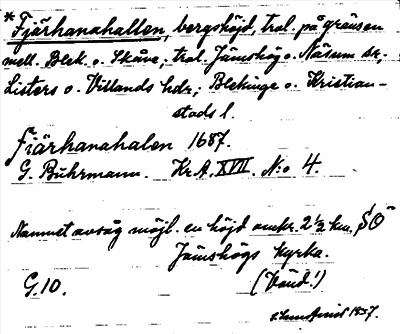 * Fjärhanahallen, bergshöjd, trol. på gränsen
mell. Blek. o. Skåne; trol. Jämshög o. Näsum sk,
Listers o. Villands hdr; Blekinge o. Kristian-
stads l.
Fiärhanahalen 1687.
G. Buhrmann. Kr.A. XVII. N:o 4.
Namnet avsåg möjl. en höjd omkr. 2 ½ km. SÖ
Jämshögs kyrka.
G.10.
1937.